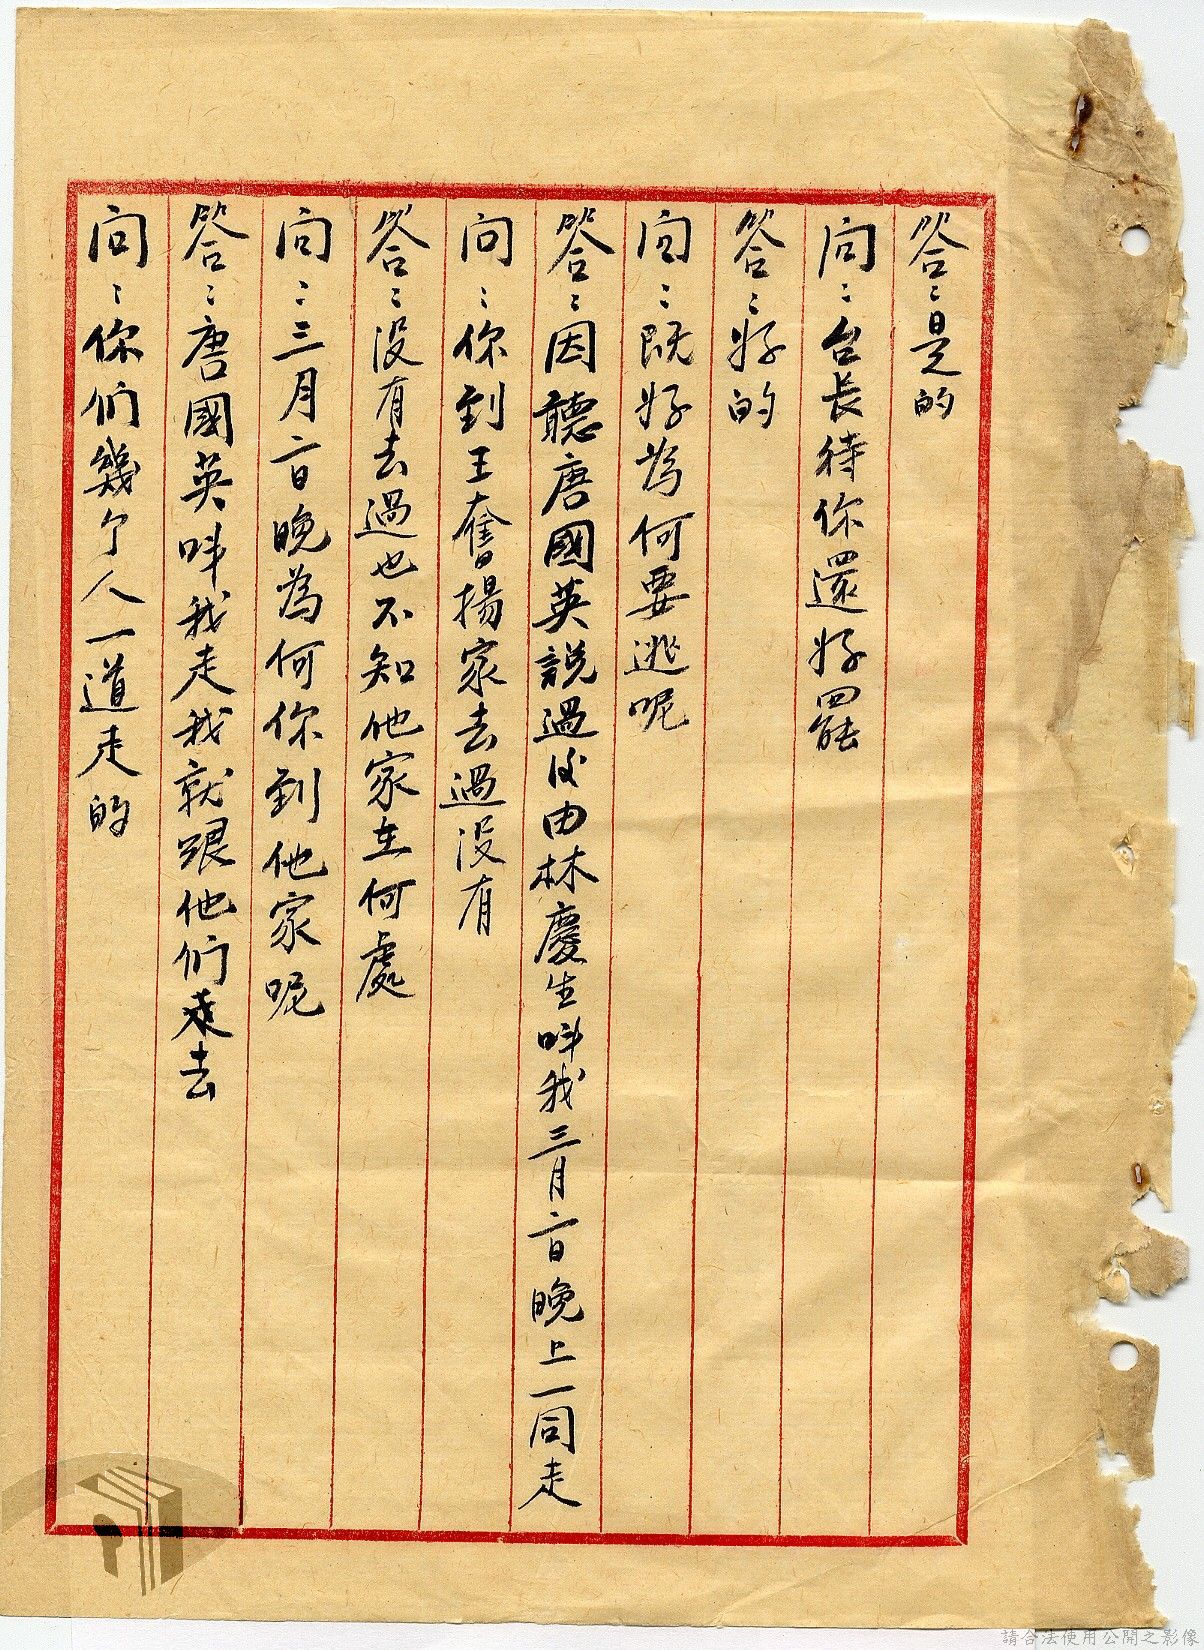 答：是的
问：台長待你還好罷
答：好的
问：既好為何要逃呢
答：因聽唐國英說過後由林慶生叫我三月二日晚上一同走
问：你到王奮揚家去過沒有
答：沒有去過也不知他家在何處
问：三月二日晚為何你到他家呢
答：唐國英叫我走我就跟他們走去
问：你们幾个人一道走的
請合法使用公開之影像